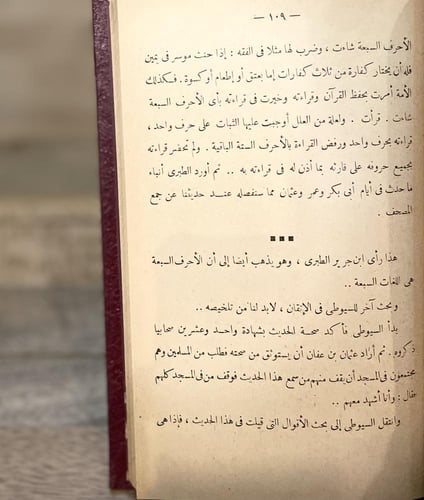 — ١٠٩ —
الأحرف السبعة شاءت ، وضرب لها مثلا فى الفقه : إذا حنث موسر فى يمين
فله أن يختار كفارة من ثلاث كفارات إما بعتق أو إطعام أو كسوة . فكذلك
الأمة أمرت بحفظ القرآن وقراءته وخيرت فى قراءته بأى الأحرف السبعة
شاءت . قرأت . ولعلة من العلل أوجبت عليها الثبات على حرف واحد ،
قراءته بحرف واحد ورفض القراءة بالأحرف الستة الباقية . ولم تحظر قراءته
بجميع حروفه على قارئه بما أذن له فى قراءته به .. ثم أورد الطبرى أنباء
ما حدث فى أيام أبى بكر وعمر وعثمان مما سنفصله عند حديثنا عن جمع
المصحف .
هذا رأى ابن جرير الطبرى ، وهو يذهب أيضا إلى أن الأحرف السبعة
هى اللغات السبعة ..
وبحث آخر للسيوطى فى الإتقان ، لابد لنا من تلخيصه ..
بدأ السيوطى فأكد صحة الحديث بشهادة واحد وعشرين صحابيا
ذكروه . ثم أراد عثمان بن عفان أن يستوثق من صحته فطلب من المسلمين وهم
مجتمعون فى المسجد أن يقف منهم من سمع هذا الحديث فوقف من فى المسجد كلهم
فقال : وأنا أشهد معهم ..
وانتقل السيوطى إلى بحث الأقوال التى قيلت فى هذا الحديث ، فإذا هى